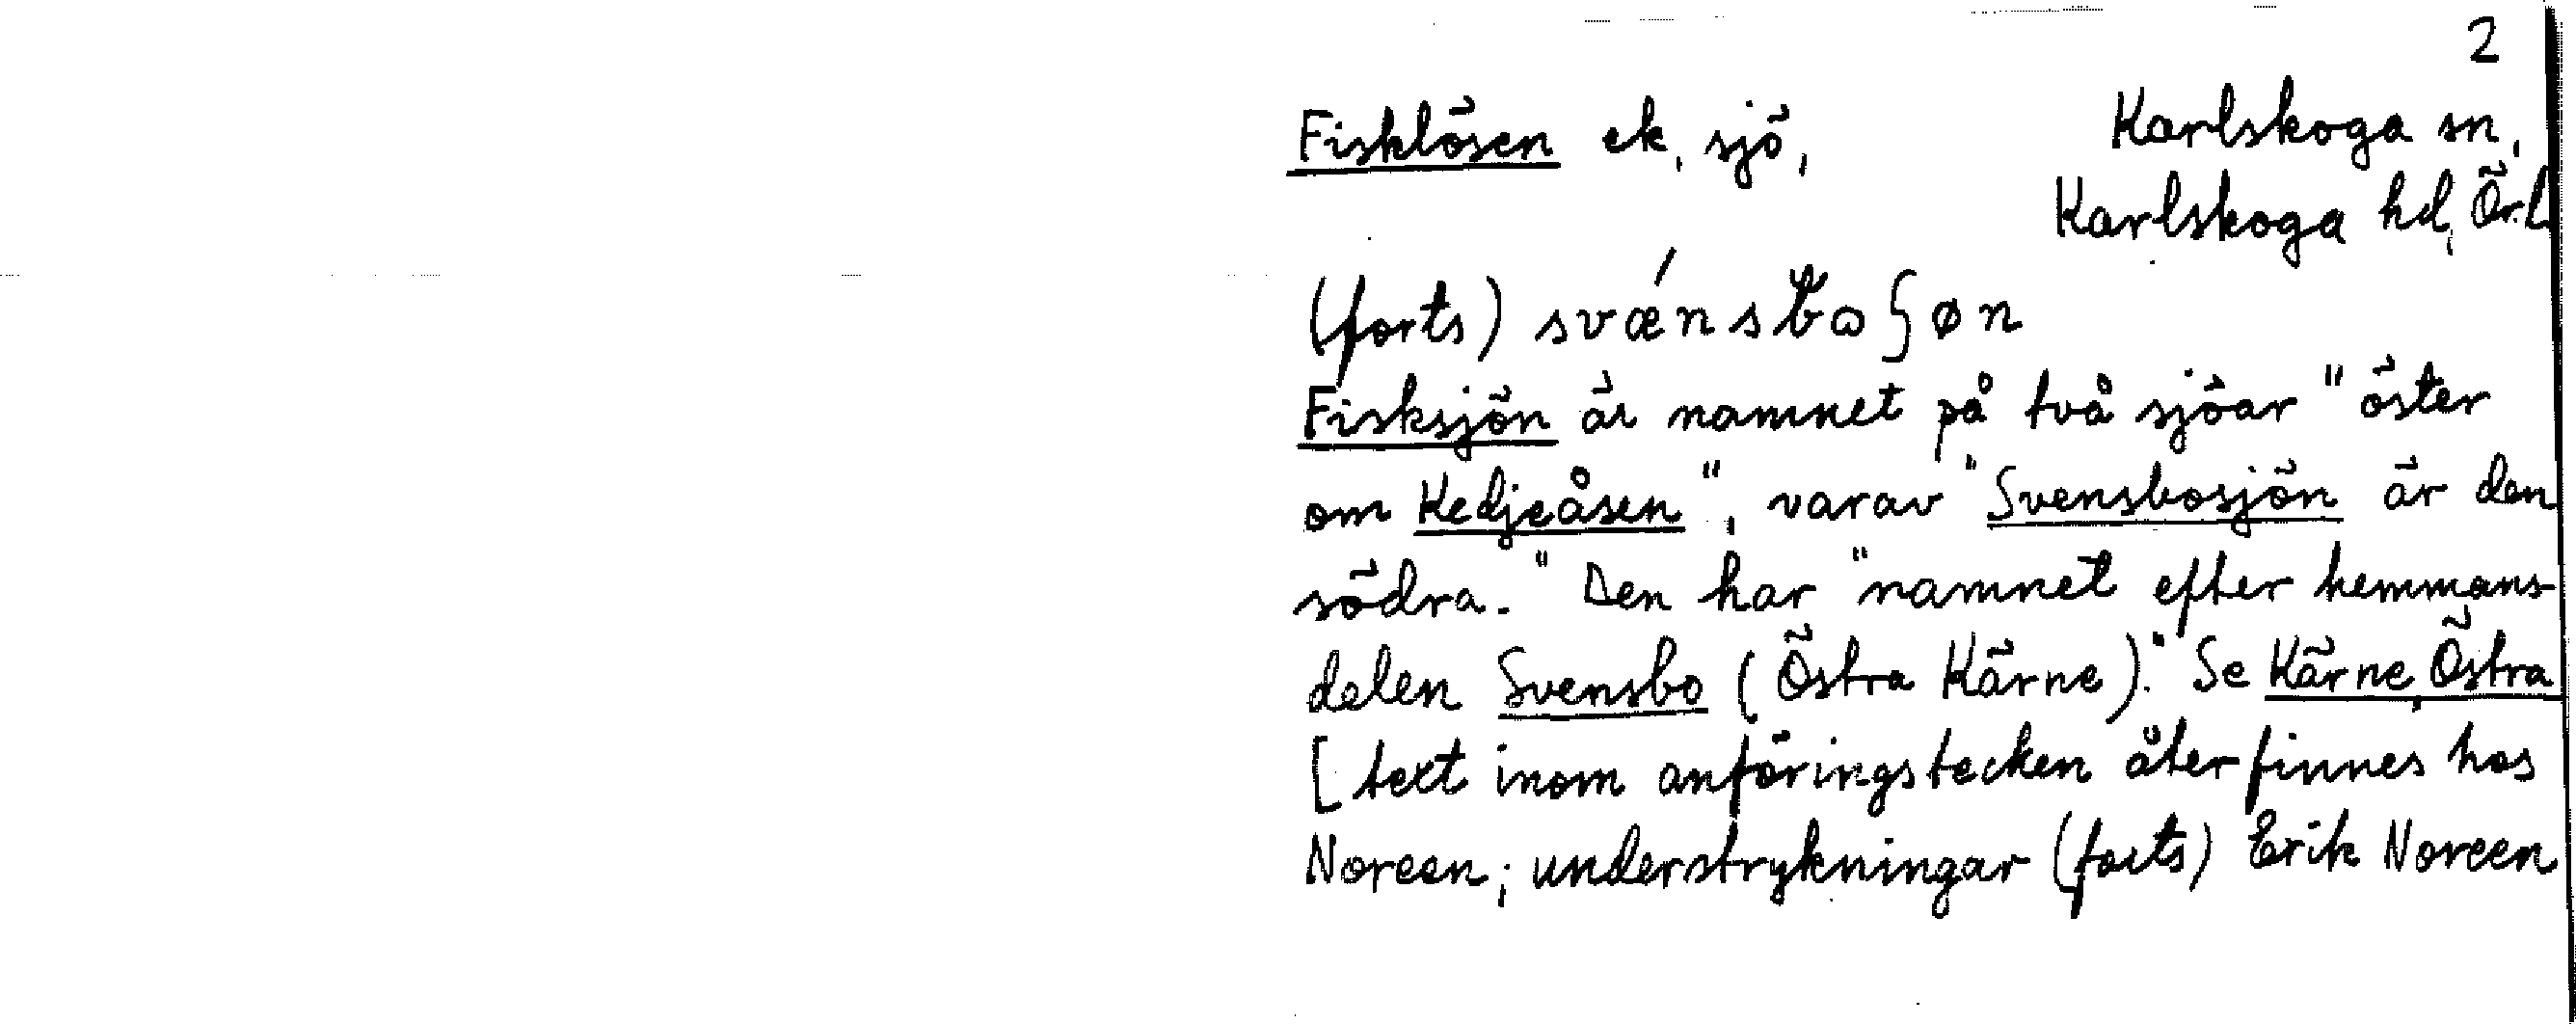 2
Fisklösen ek, sjö, Karlskoga sn,
Karlskoga hd, Ör.l
(forts) svǽnsbꞷʃøn
Fisksjön är namnet på två sjöar "öster
om Kedjeåsen", varav "Svensbosjön är den
södra." Den har "namnet efter hemmans-
delen Svensbo (Östra Kärne)." Se Kärne, Östra
[text inom anföringstecken återfinnes hos
Noreen; understrykningar (forts) Erik Noreen